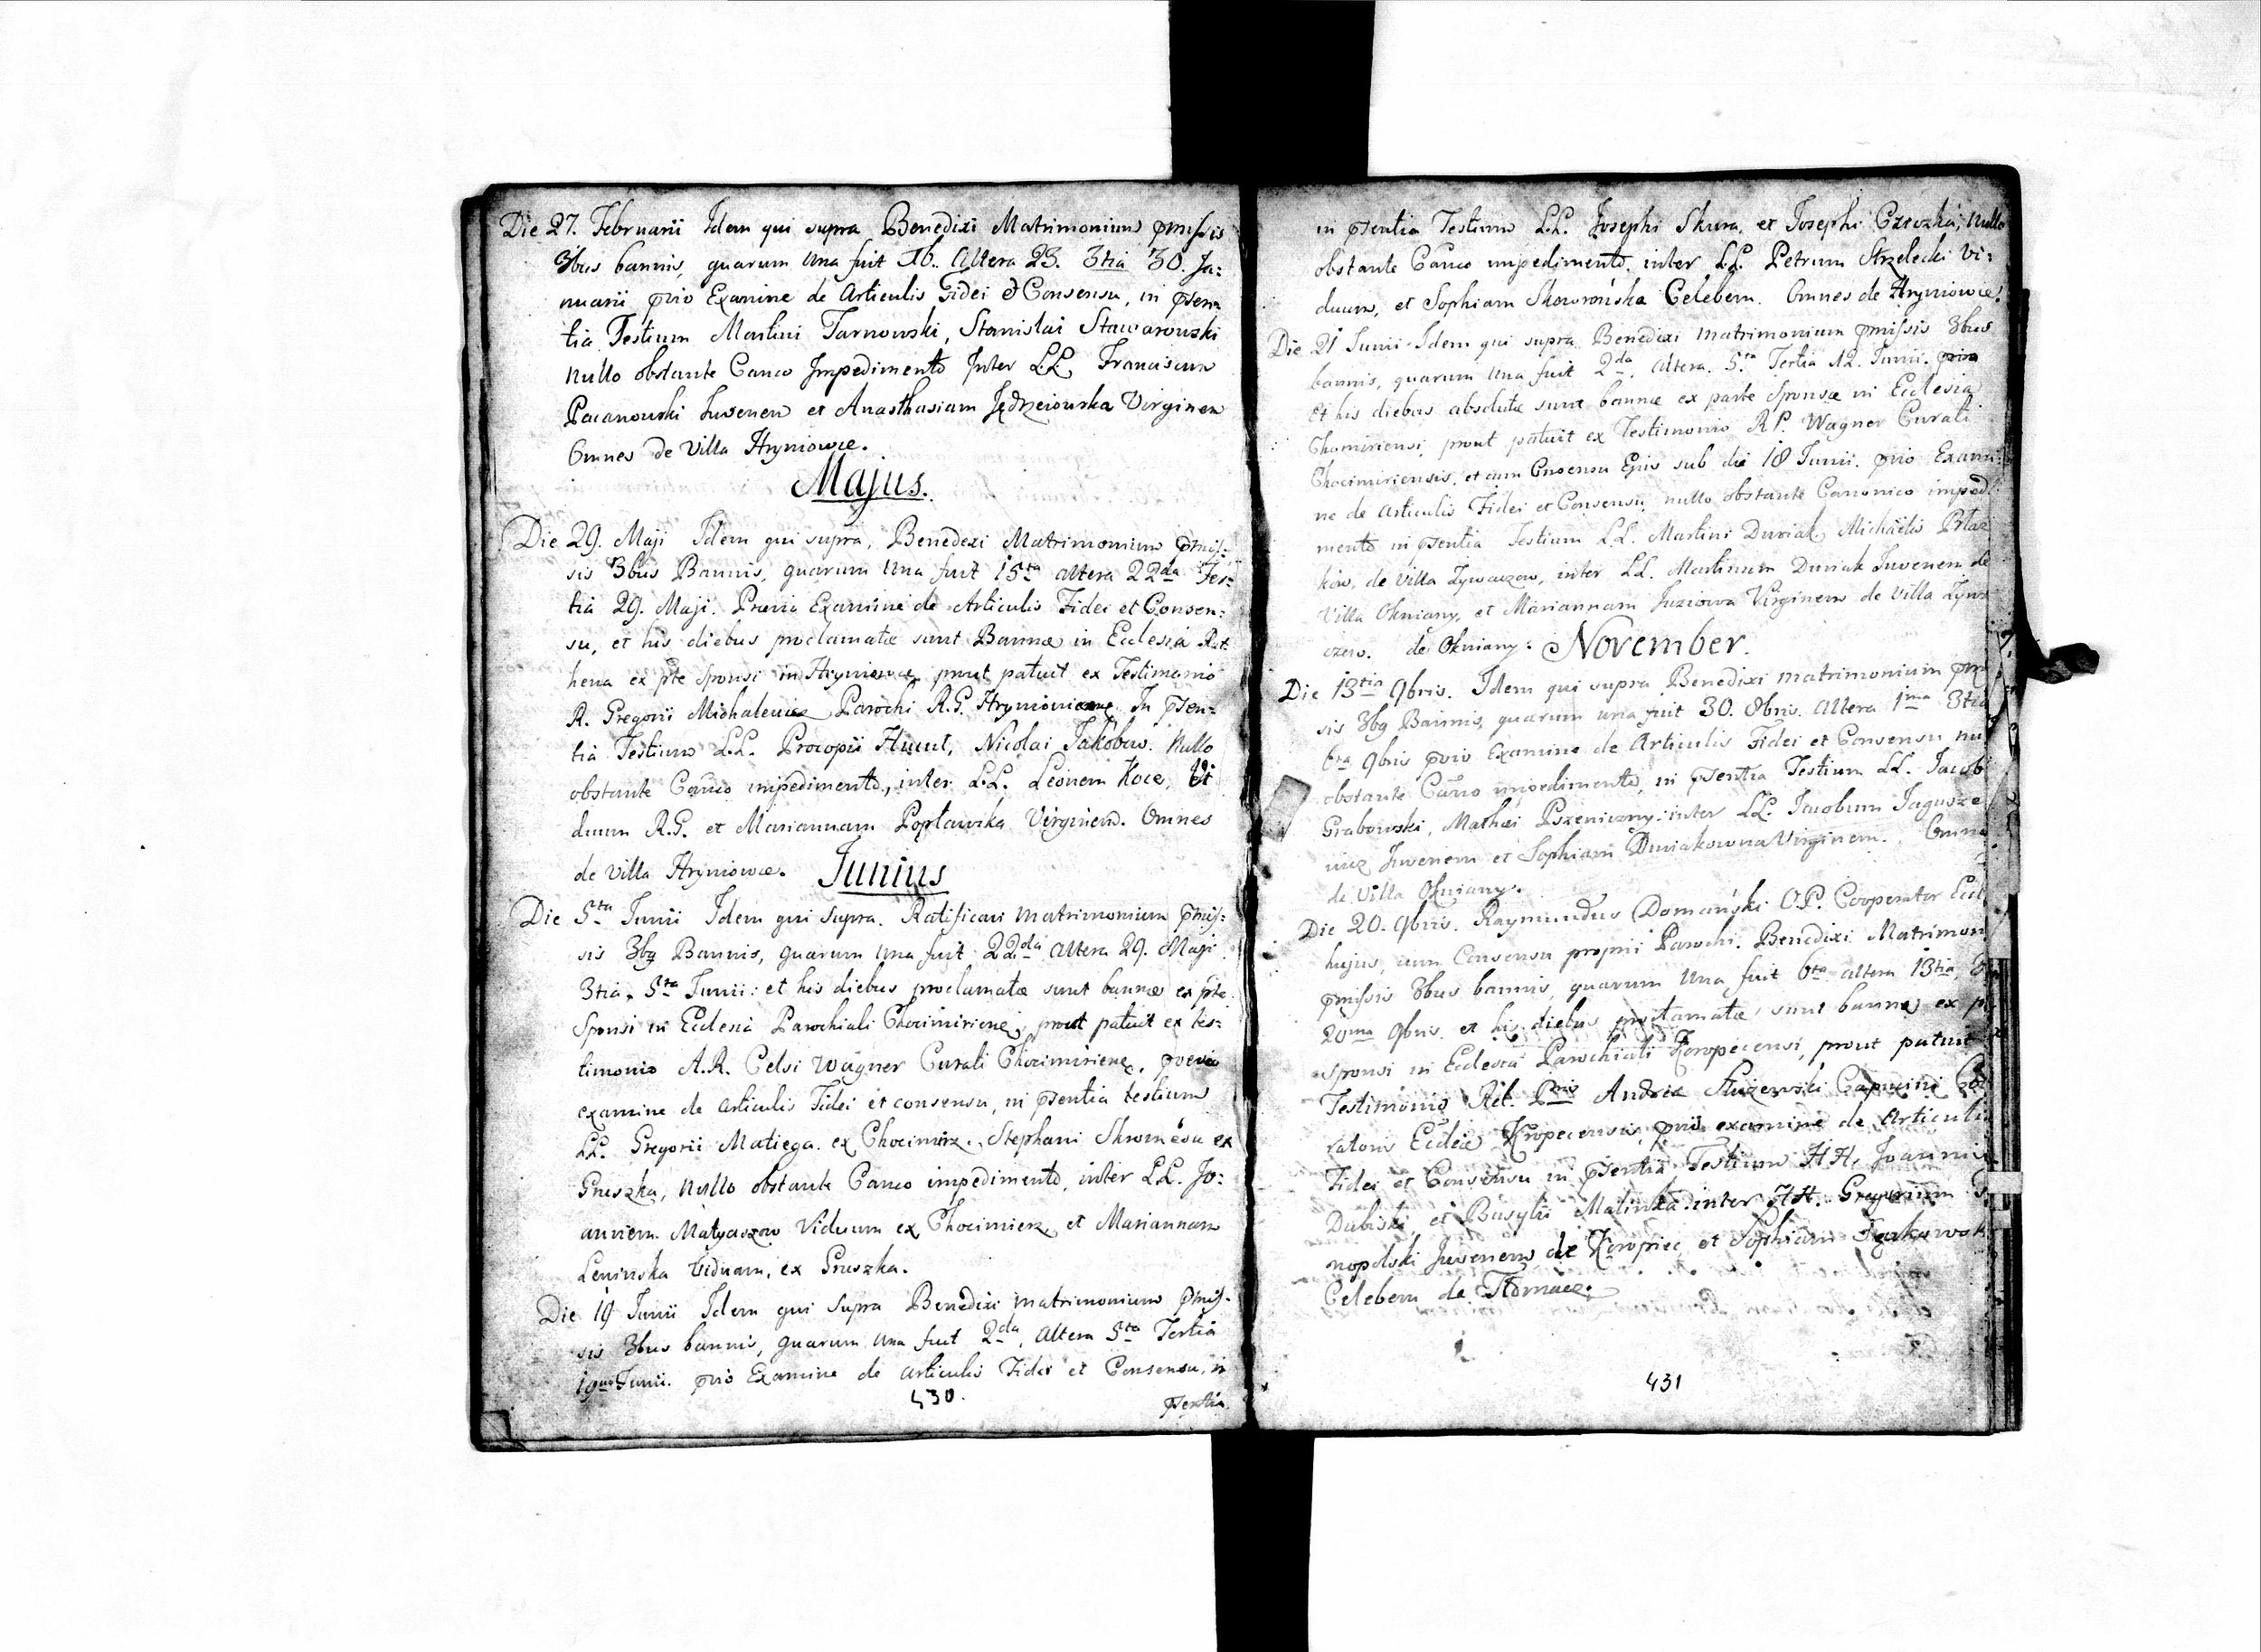 Die 27. Februarii Idem qui supra Benedixi Matrimonium pmissis
3bus bannis, quarum una fuit 16. Altera 23. 3tia 30. Ja:
nuarii pvio Examine de Articulis Fidei & Consensu, in psen
tia Testium Martini Tarnowski, Stanislai Stawarowski
nullo obstante Canco Impedimento Inter L.L. Franciscum
Pacanowski Iuvenem et Anasthasiam Jędrzeiowska Virginem
Omnes de Villa Hryniowce.
Majus.
Die 29. Maji Idem qui supra, Benedexi Matrimonium pmis:
sis 3bus Bannis, quarum una fuit 15ta altera 22da Ter:
tia 29. Maji. Previa Examine de Articulis Fidei et Consen:
su, et his diebus proclamatæ sunt Bannæ in Ecclesia Rut
hena ex pte Sponsi in Hryniowce, prout patuit ex Testimonio
R. Gregorii Michalewicz Parochi R.G. In psen:
tia Testium L.L. Procopii Hucul, Nicolai Jakobow. Nullo
obstante Canco impedimento, inter L.L. Leonem Koce, Vi
duum R.G. et Mariannam Popławska Virginem. Omnes
de Villa Hryniowce. Junius
Die 5ta Junii Idem qui supra. Ratificavi matrimonium pmis:
sis 3bq Bannis, quarum una fuit 22da altera 29. Maji
3tia. 5ta Junii: et his diebus proclamatæ sunt bannæ ex pte
Sponsi in Ecclesia Parochiali Chocimiriens, prout patuit ex tes:
timonio A.R. Celsi Wagner Curati Chocimiriens, previo
examine de articulis Fidei et consensu, in psentia testium
LL. Gregorii Matiega ex Chocimirz. Stephani ex
Gruszka, nullo obstante Canco impedimento, inter L.L. Jo:
annem Matyaszow Viduum ex Chocimierz et Mariannam
Leninska Viduam, ex Gruszka.
Die 19 Junii Idem qui supra Benedixi matrimonium pmis:
sis 3bus bannis, quarum una fuit 2da, altera 5ta Tertia
Junii. pvio Examine de articulis Fidei et Consensu, in
430. psentia
in psentia Testium L.L. Josephi Skura, et Josephi Czeczka, nullo
obstante Canco impedimento, inter L.L. Petrum Strzelecki Vi:
duum, et Sophiam Skowrońska Celebem. Omnes de Hryniowce.
Die 21 Junii Idem qui supra Benedixi matrimonium pmissis 3bus
bannis, quarum una fuit 2da. altera. 5ta Tertia 12. Junii.
et his diebus absolutæ sunt bannæ ex parte Sponsæ in Ecclesia
prout patuit ex Testimonio RP. Wagner Curati
Chocimiriensis, et cum Consensu Ejus sub die 18 Junii. pvio Exami:
ne de articulis Fidei et Consensu, nullo obstante Canonico impedi
mento in psentia Testium L.L. Martini Duviak, Michaelis
ków, de Villa Zywaczow, inter LL. Martinum Duviak Iuvenem de
Villa Okniany, et Mariannam Juziowa Virginem de Villa Zywa
czow. de Okniany: November.
Die 13tia 9bris. Idem qui supra Benedixi matrimonium pmis
sis 3bq Bannis, quarum una fuit 30. 8bris. Altera 1ma 3tia
6ta 9bris pvio Examine de Articulis Fidei et Consensu nul
obstante Canco impedimento, in psentia Testium LL. Jacobi
Grabowski, Mathæi Pszeniczny: inter L.L. Jacobum Jagusze
wicz Iuvenem et Sophiam Duviakowna Virginem. Omne
de Villa Okniany.
Die 20. 9bris. Raymundus Domański O.P. Cooperator Eccl
hujus, cum Consensu proprii Parochi. Benedixi Matrimon
pmissis 3bus bannis, quarum una fuit 6ta altera 13tia,
20ma 9bris. et his diebus proclamatæ sunt bannæ ex p
sponsi in Ecclesia Parochiali Koropecensi, prout patuit
Testimonio Rel. Pris Andreæ Capucini
ratoris Ecclæ Koropecensis, pvio examine de Articulis
Fidei et Consensu in psentia Testium HH. Joannis
Dubiski, et Basylii Malinka: inter HH. Gregorium
nopolski Iuvenem de Koropiec et Sophiam
Celebem de Tłomacz.
431